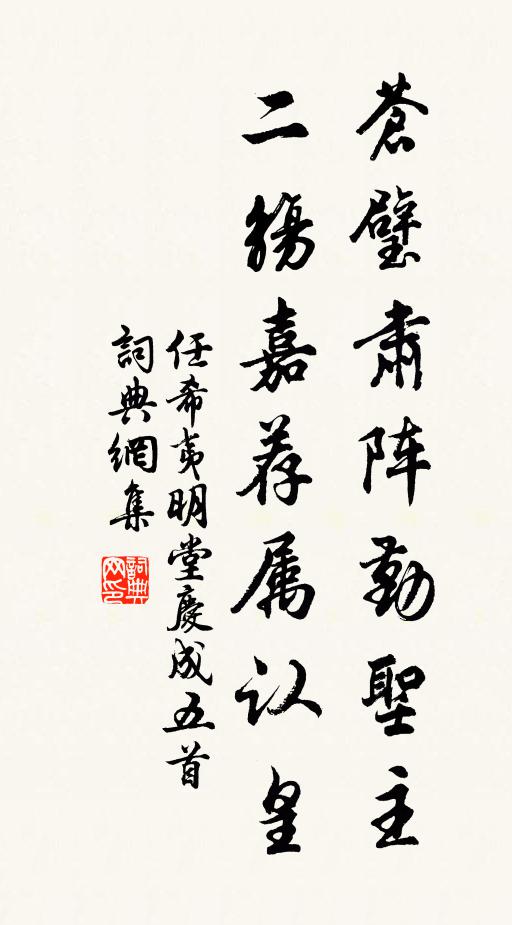 蒼璧肅阵勤聖主
二觴嘉荐属认皇
任希夷明堂慶成五首
詞典網集
詞典网印